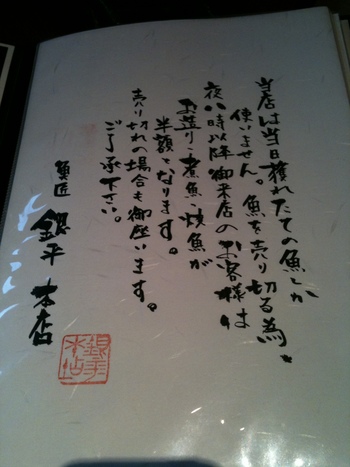 当店は当日獲れたての魚しか
使いません。魚を売り切る為、
夜八時以降御来店のお客様は
お造り・煮魚・焼魚が
半額となります。
売り切れの場合も御座います。
ご了承下さい。
魚匠 銀平 本店
銀平本店